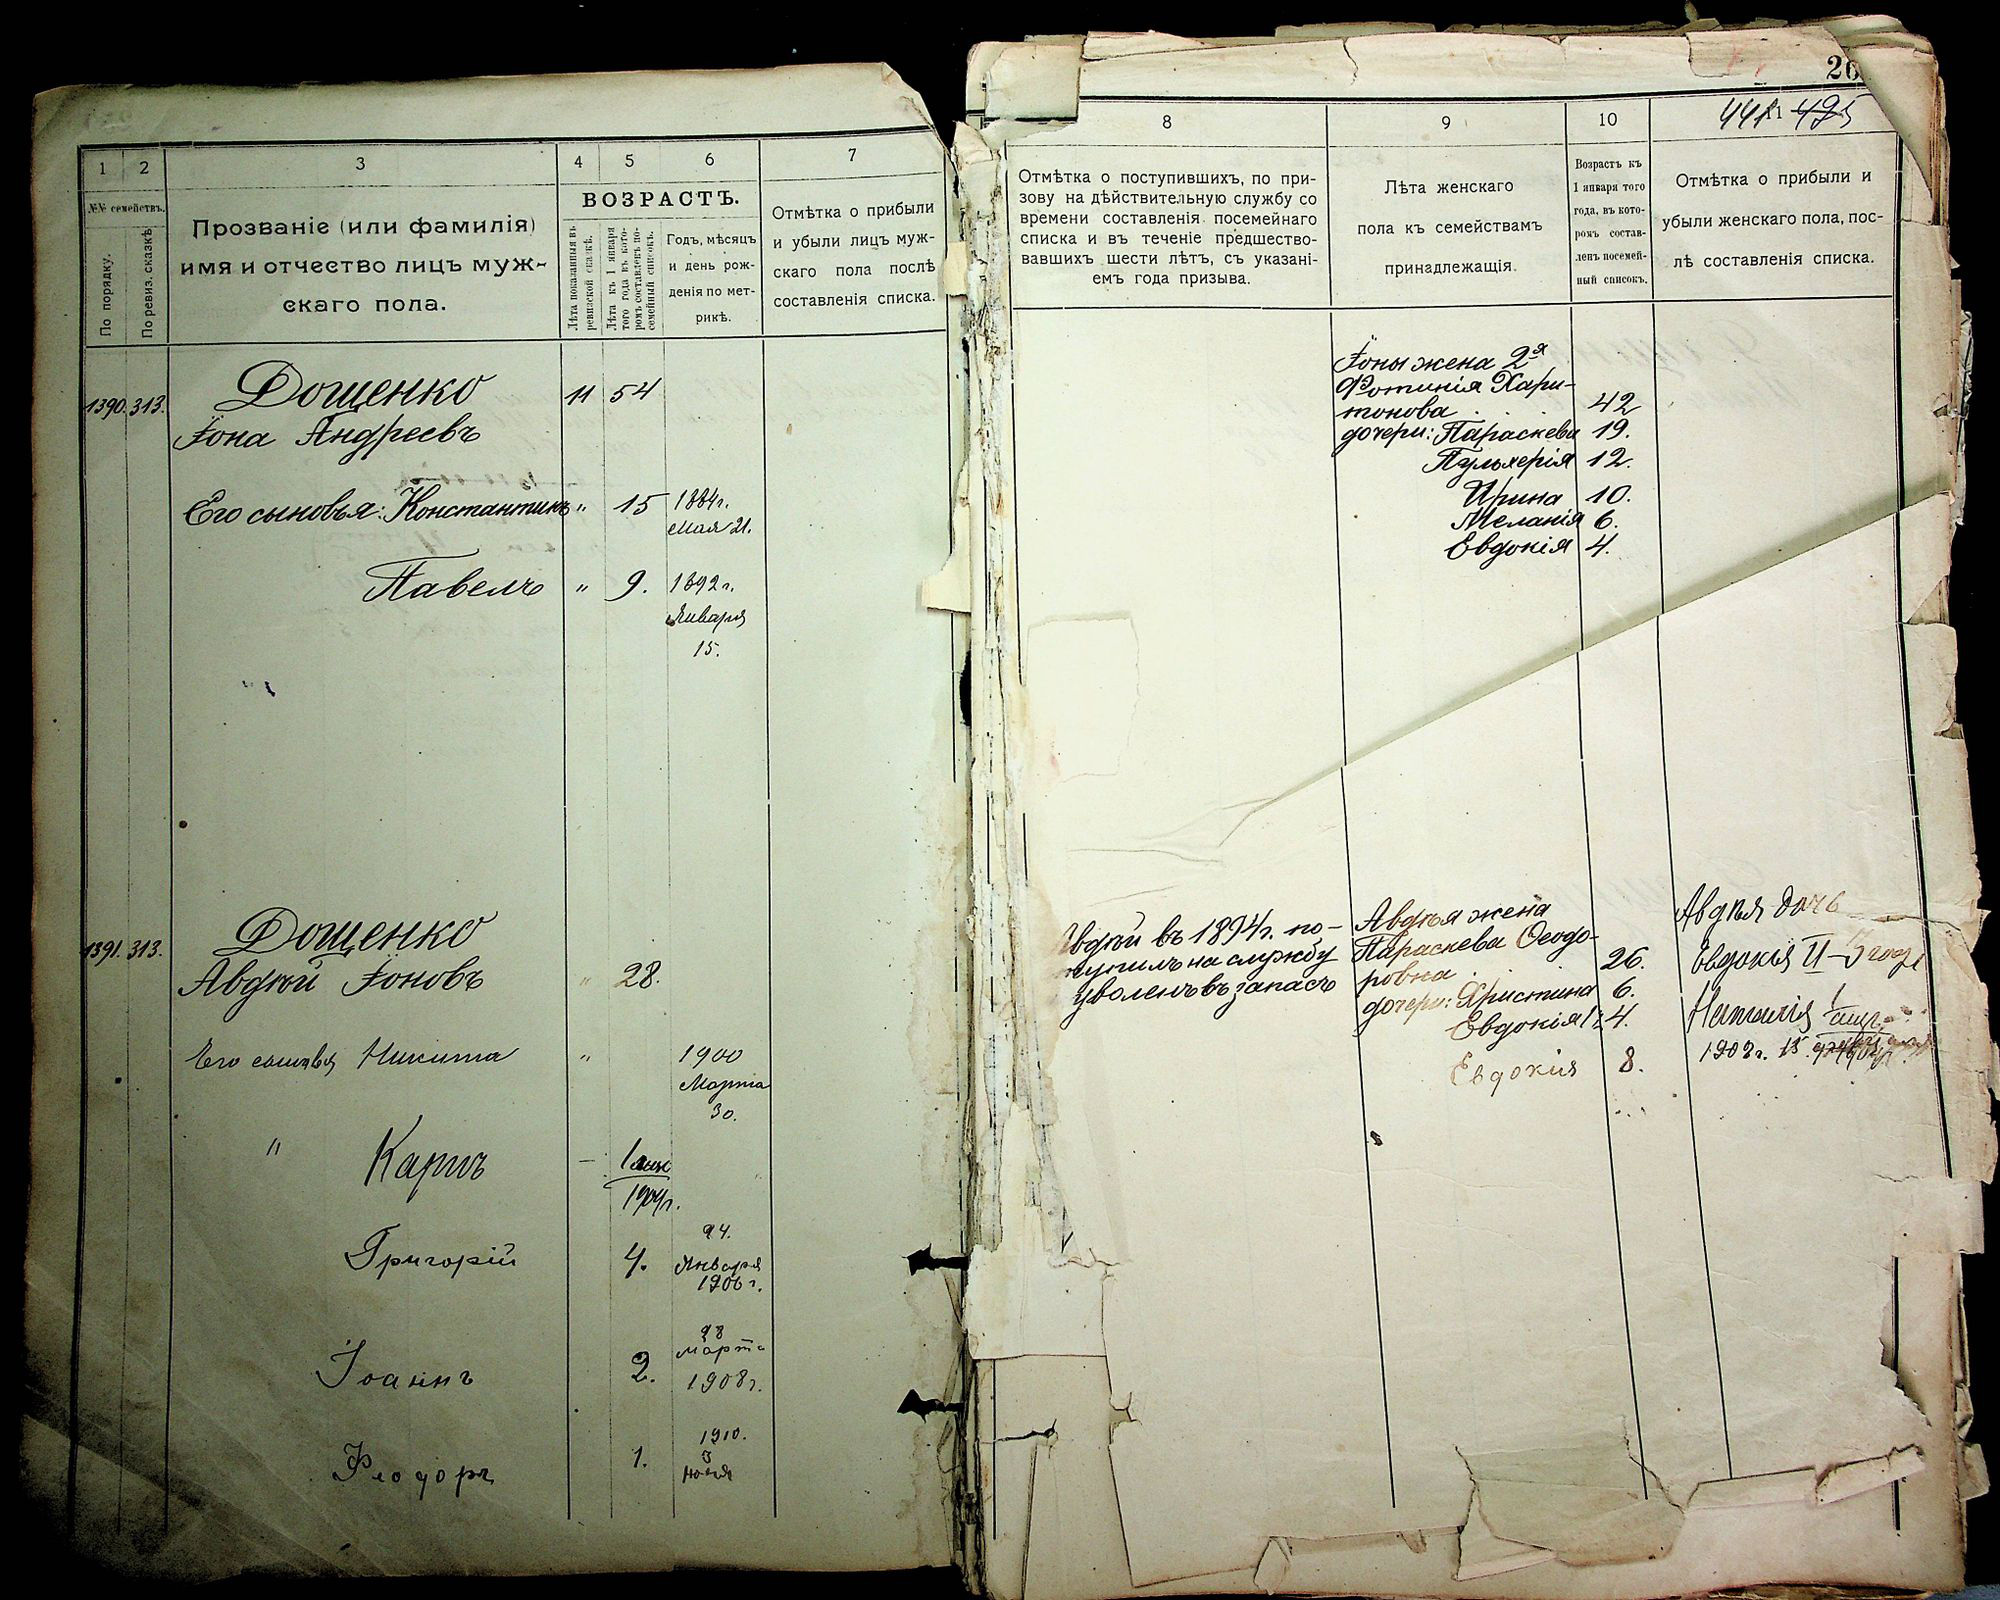 1
2
3
4
5
6
7
№№ семействъ.
По порядку.
По ревиз. сказкѣ
Прозваніе (или фамилія)
имя и отчество лицъ муж-
скаго пола.
ВОЗРАСТЪ.
Лѣта показанныя въ
ревизской сказкѣ.
Лѣта къ 1 января
того года въ кото-
ромъ составленъ по-
семейный списокъ.
Годъ, мѣсяцъ
и день рож-
денія по мет-
рикѣ.
Отмѣтка о прибыли
и убыли лицъ муж-
скаго пола послѣ
составленія списка.
1390. 313. Дощенко 11 54
Іона Андреевъ
Его сыновья: Константинъ " 15 1884г.
Мая 21.
Павелъ " 9. 1892 г.
Января
15.
1391. 313. Дощенко
Авдѣй Іоновъ " 28.
Его сыновья Никита " 1900
Марта
30.
" Карпъ —
1904г.
Григорій 4. 24.
Января
1906 г.
Іоаннъ 2. 28
марта
1908 г.
Феодоръ 1. 1910.
3
Іюня
26
441 495
8
9
10
11
Отмѣтка о поступившихъ, по при-
зову на дѣйствительную службу со
времени составленія посемейнаго
списка и въ теченіе предшество-
вавшихъ шести лѣтъ, съ указані-
емъ года призыва.
Лѣта женскаго
пола къ семействамъ
принадлежащія.
Возрастъ къ
1 января того
года, въ кото-
ромъ состав-
ленъ посемей-
ный списокъ.
Отмѣтка о прибыли и
убыли женскаго пола, пос-
лѣ составленія списка.
Іоны жена 2я
Фотинія Хари-
тонова 42
дочери: Параскева 19.
Пульхерія 12.
Ирина 10.
Меланія 6.
Евдокія 4.
Авдѣй въ 1894г. по-
ступилъ на службу
уволенъ въ запасъ
Авдѣя жена
Параскева Ѳеодо-
ровна 26.
дочери: Христина 6.
Евдокія 4.
Евдокія 8.
Авдѣя дочь
Евдокія II — 3 года
Наталія
1902 г. 15